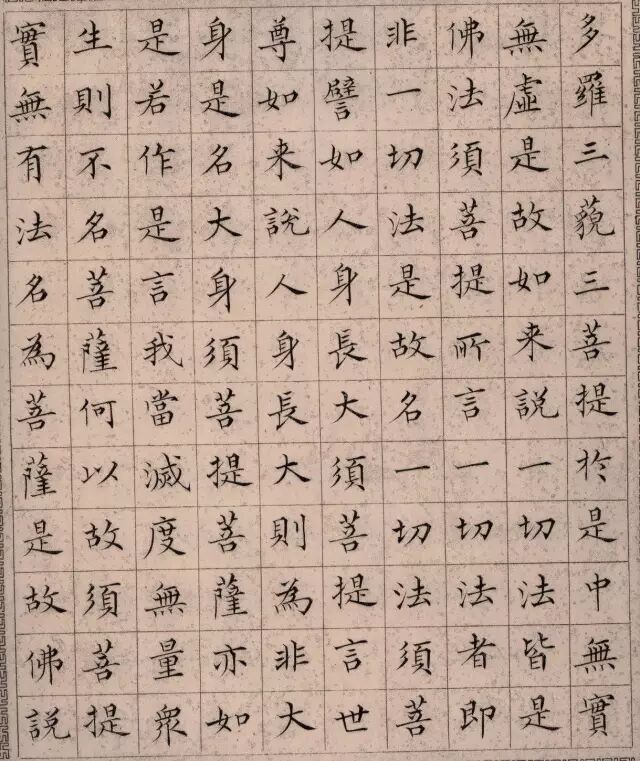 多羅三藐三菩提於是中無實
無虛是故如来說一切法皆是
佛法須菩提所言一切法者即
非一切法是故名一切法須菩
提譬如人身長大須菩提言世
尊如来說人身長大則為非大
身是名大身須菩提菩薩亦如
是若作是言我當滅度無量眾
生則不名菩薩何以故須菩提
實無有法名為菩薩是故佛說